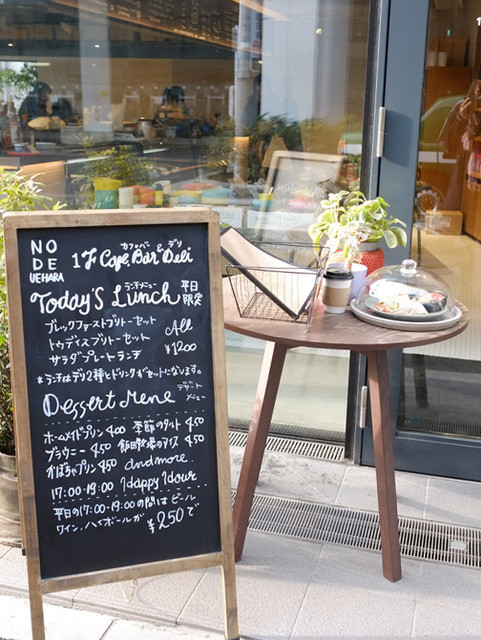 NO
DE
UEHARA
カフェバー & デリ
1F Cafe, Bar Deli
ランチメニュー
Today's Lunch 平日限定
ブレックファーストブリトーセット
トゥデイスブリトーセット
サラダプレートランチ
All
¥1200
*ランチはデリ2種とドリンクがセットになります。
Dessert Mene デザートメニュー
ホームメイドプリン 400 季節のタルト 450
ブラウニー 450 飯田牧場のアイス 450
かぼちゃプリン 450 and more..
17:00-19:00 Happy Hour
平日の17:00-19:00の間はビール
ワイン、ハイボールが ¥250で